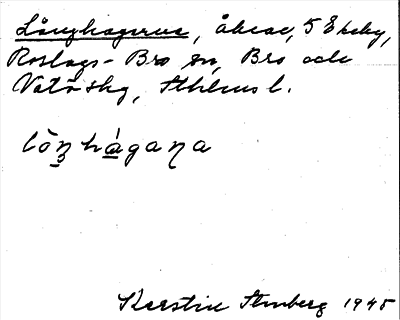 Långhagarna, åkrar, 5 Ekeby,
Roslags-Bro sn, Bro och
Vätö skg, Sthlms l.
lȯn̠ hàgaɳa
Kerstin Stenberg 1945